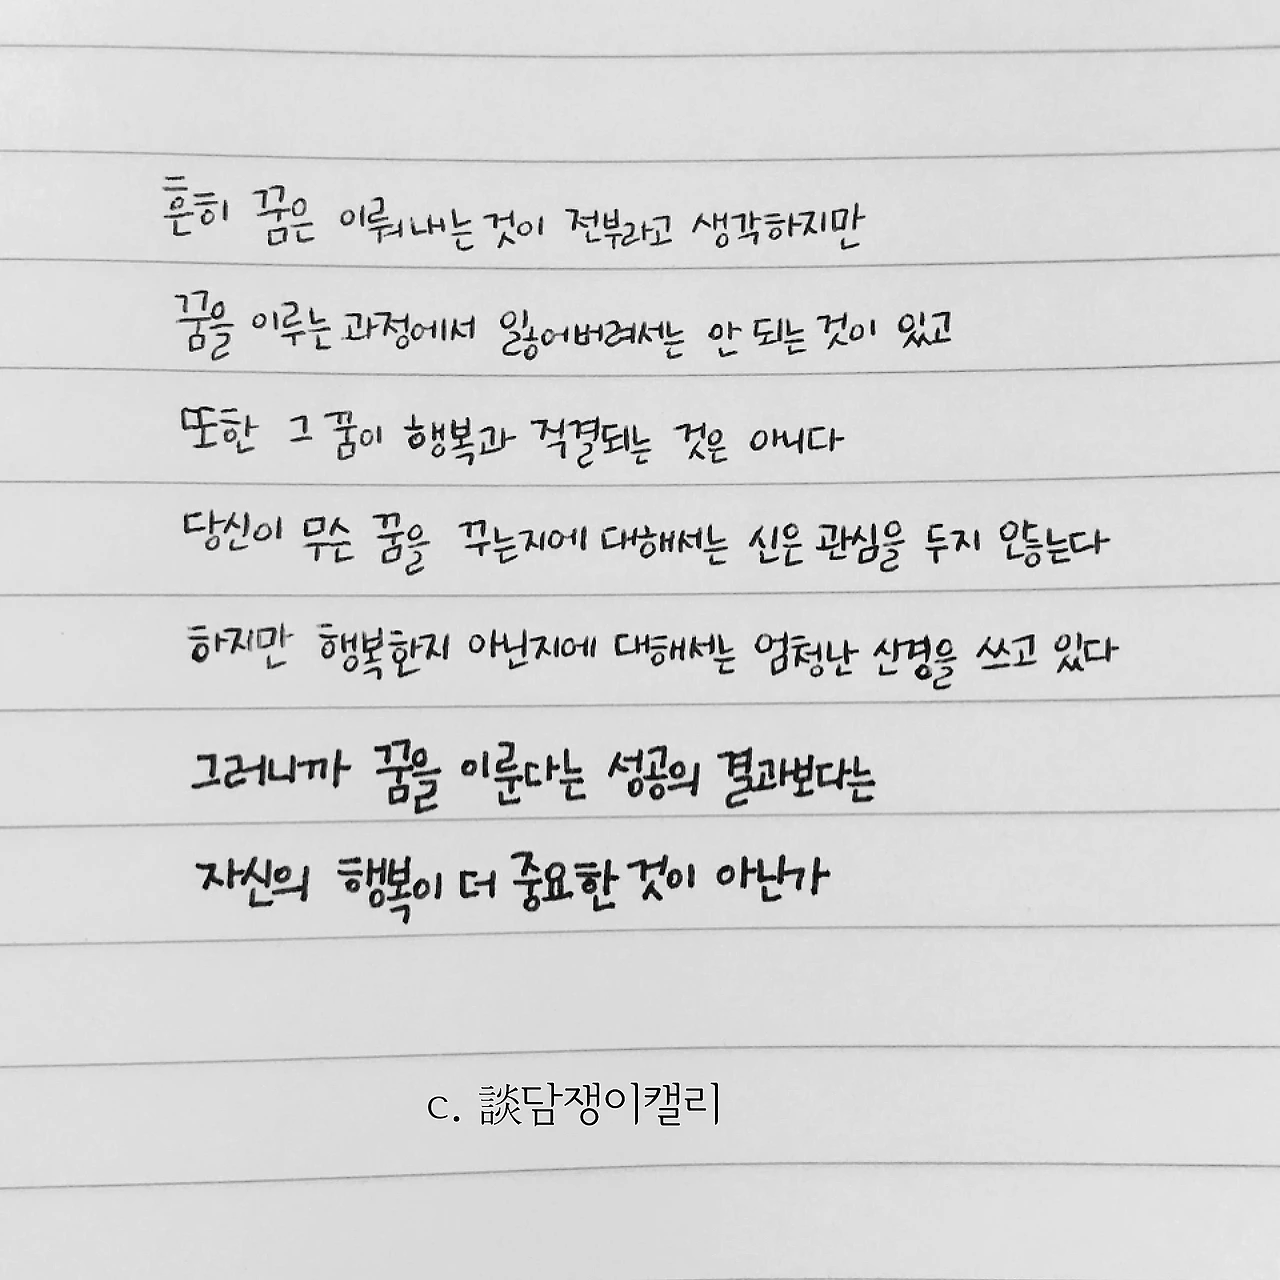 흔히 꿈은 이뤄내는 것이 전부라고 생각하지만
꿈을 이루는 과정에서 잃어버려서는 안 되는 것이 있고
또한 그 꿈이 행복과 직결되는 것은 아니다
당신이 무슨 꿈을 꾸는지에 대해서는 신은 관심을 두지 않는다
하지만 행복한지 아닌지에 대해서는 엄청난 신경을 쓰고 있다
그러니까 꿈을 이룬다는 성공의 결과보다는
자신의 행복이 더 중요한 것이 아닌가
c. 談담쟁이캘리